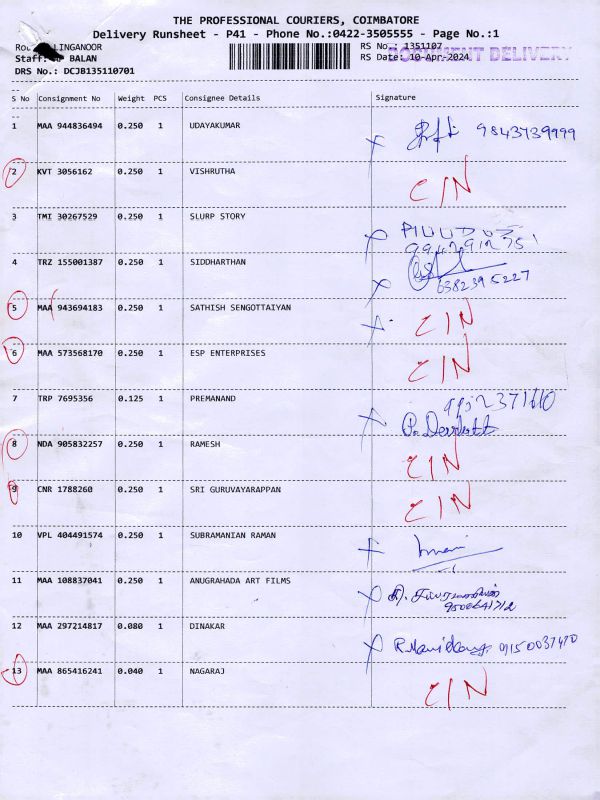 THE PROFESSIONAL COURIERS, COIMBATORE
Delivery Runsheet - P41 - Phone No.:0422-3505555 - Page No.:1
LINGANOOR
RS No.: 1351107
DOCUMENT DELIVERY
Staff: BALAN
RS Date: 10-Apr-2024
DRS No.: DCJB135110701
S No Consignment No Weight PCS Consignee Details Signature
1 MAA 944836494 0.250 1 UDAYAKUMAR 9843739999
2 KVT 3056162 0.250 1 VISHRUTHA C/N
3 TMI 30267529 0.250 1 SLURP STORY
4 TRZ 155001387 0.250 1 SIDDHARTHAN 6382395227
5 MAA 943694183 0.250 1 SATHISH SENGOTTAIYAN C/N
6 MAA 573568170 0.250 1 ESP ENTERPRISES C/N
7 TRP 7695356 0.125 1 PREMANAND
8 NDA 905832257 0.250 1 RAMESH C/N
9 CNR 1788260 0.250 1 SRI GURUVAYARAPPAN C/N
10 VPL 404491574 0.250 1 SUBRAMANIAN RAMAN
11 MAA 108837041 0.250 1 ANUGRAHADA ART FILMS
12 MAA 297214817 0.080 1 DINAKAR
13 MAA 865416241 0.040 1 NAGARAJ C/N